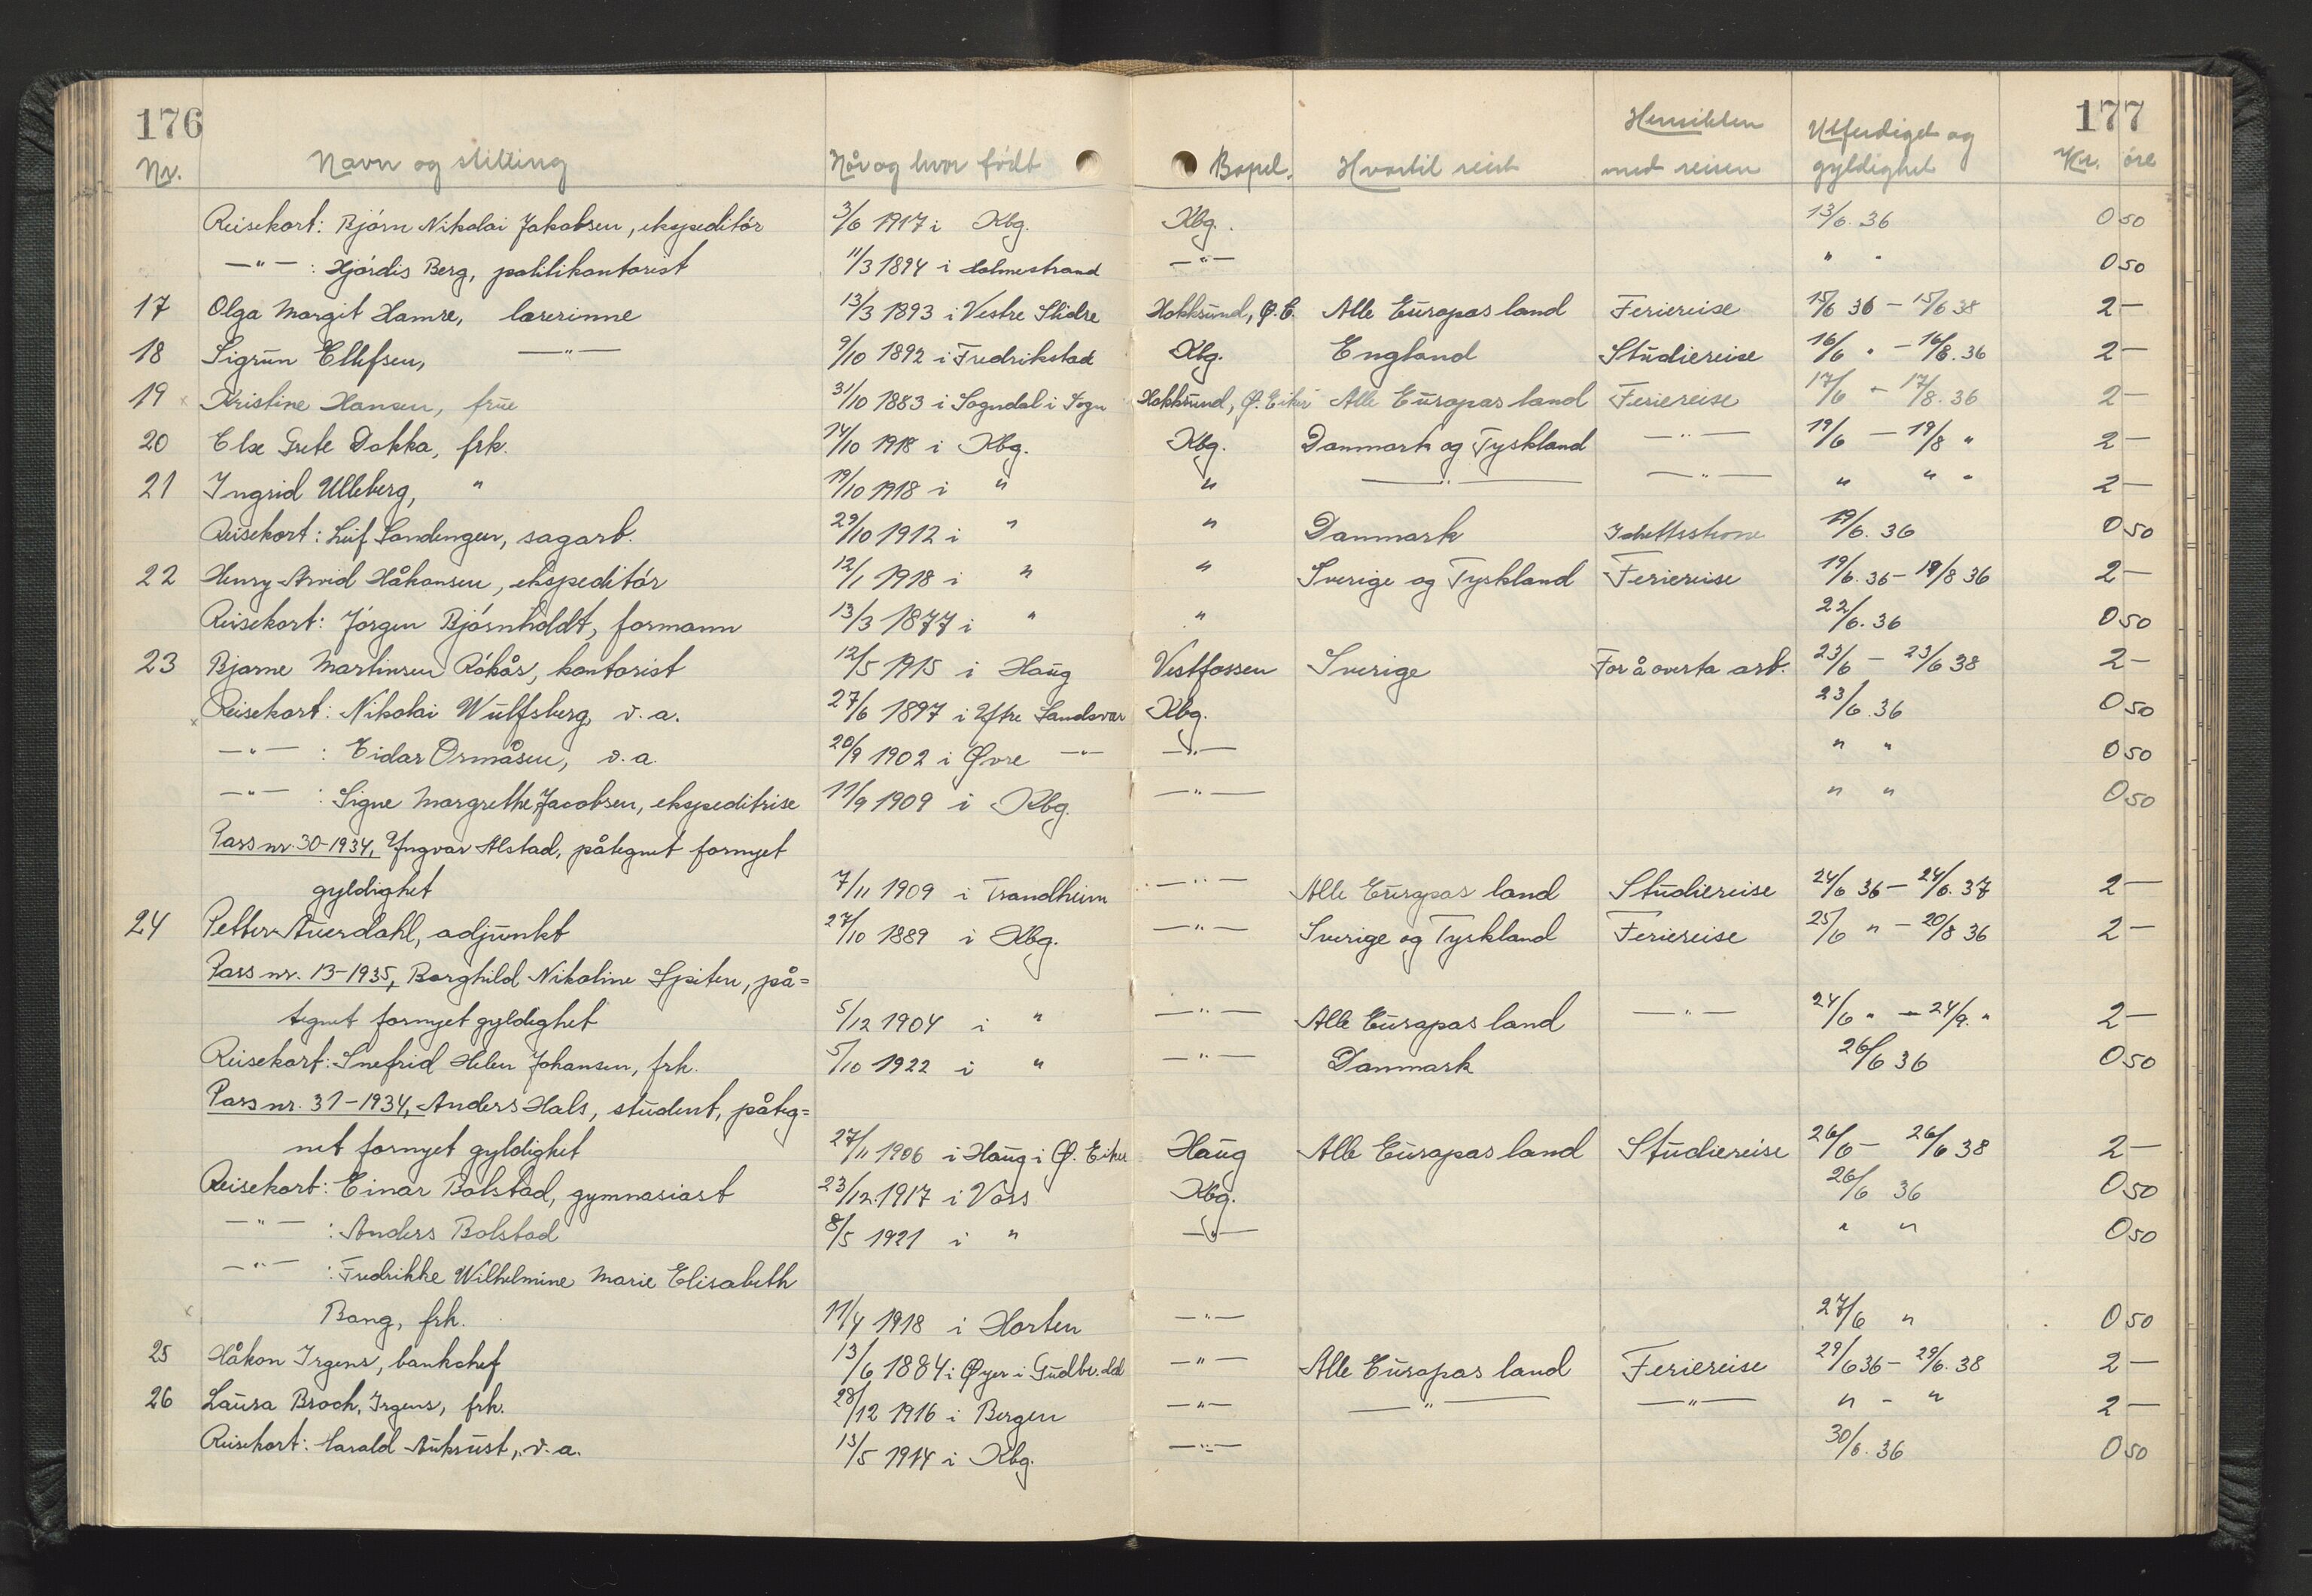 176 177
Nr. Navn og stilling Når og hvor født Bopel. Hvortil reist Hensikten med reisen Utferdiget og gyldighet Kr. øre
Reisekort: Bjørn Nikolai Jakobsen, ekspeditør 3/6 1917 i Kbg. Kbg. 13/6. 36 0 50
—"— : Hjørdis Berg, politikontorist 11/3 1894 i Holmestrand —"— " " 0 50
17 Olga Margit Hamre, lærerinne 13/3 1893 i Vestre Slidre Hokksund, Ø.E. Alle Europas land Feriereise 15/6 36 — 15/6 38 2 —
18 Sigrun Ellefsen, —"— 9/10 1892 i Fredrikstad Kbg. England Studiereise 16/6 " — 16/8. 36 2 —
19 x Kristine Hansen, frue 31/10 1883 i Sogndal i Sogn Hokksund, Ø. Eiker Alle Europas land Feriereise 17/6 — 17/8. 36 2 —
20 Else Grete Dokka, frk. 14/10 1918 i Kbg. Kbg. Danmark og Tyskland —"— 19/6 — 19/8 " 2 —
21 Ingrid Ulleberg, " 19/10 1918 i " " —"— —"— " " " 2 —
Reisekort: Leif Sandengen, sagarb. 29/10 1912 i " " Danmark Idrettsstevne 19/6. 36 0 50
22 Henry Arvid Håkonsen, ekspeditør 12/1 1918 i " " Sverige og Tyskland Feriereise 19/6. 36 — 19/8 36 2 —
Reisekort: Jørgen Bjørnholdt, formann 13/3 1877 i " " 22/6. 36 0 50
23 Bjarne Martinsen Råkås, kontorist 12/5 1915 i Haug Vestfossen Sverige For å overta arb. 23/6 — 23/6 38 2 —
x Reisekort: Nikolai Wulfsberg, v.a. 27/6 1897 i Ytre Sandsvær Kbg. 23/6. 36 0 50
—"— : Eidar Ormåsen, v.a. 20/9 1902 i Øvre —"— —"— " " 0 50
—"— : Signe Margrethe Jacobsen, ekspeditrise 11/9 1909 i Kbg. —"— " " 0 50
Pass nr. 30-1934, Yngvar Alstad, påtegnet fornyet
gyldighet 7/11 1909 i Trondheim —"— Alle Europas land Studiereise 24/6 36 — 24/6. 37 2 —
24 Petter Auerdahl, adjunkt 27/10 1889 i Kbg. —"— Sverige og Tyskland Feriereise 25/6 " — 20/8 36 2 —
Pass nr. 13-1935, Borghild Nikoline Spiten, på=
tegnet fornyet gyldighet 5/12 1904 i " —"— Alle Europas land —"— 24/6 " — 24/9. " 2 —
Reisekort: Snefrid Helen Johansen, frk. 5/10 1922 i " —"— Danmark 26/6 36 0 50
Pass nr. 31-1934, Anders Hals, student, påteg=
net fornyet gyldighet 27/11 1906 i Haug i Ø. Eiker Haug Alle Europas land Studiereise 26/6 — 26/6 38 2 —
Reisekort: Einar Bolstad, gymnasiast 23/12. 1917 i Voss Kbg. 26/6 36 0 50
—"— : Anders Bolstad 8/5 1921 i " —"— " " 0 50
—"— : Fredrikke Wilhelmine Marie Elisabeth
x Bang, frk. 11/4 1918 i Horten —"— 27/6 " 0 50
25 Håkon Irgens, bankchef 13/6 1884 i Øyer i Gudbr.dal —"— Alle Europas land Feriereise 29/6 36 — 29/6. 38 2 —
26 Laura Broch, Irgens, frk. 28/12 1916 i Bergen —"— —"— —"— " - " 2 —
Reisekort: Harald Aukrust, v.a. 13/5 1914 i Kbg. —"— 30/6. 36 0 50